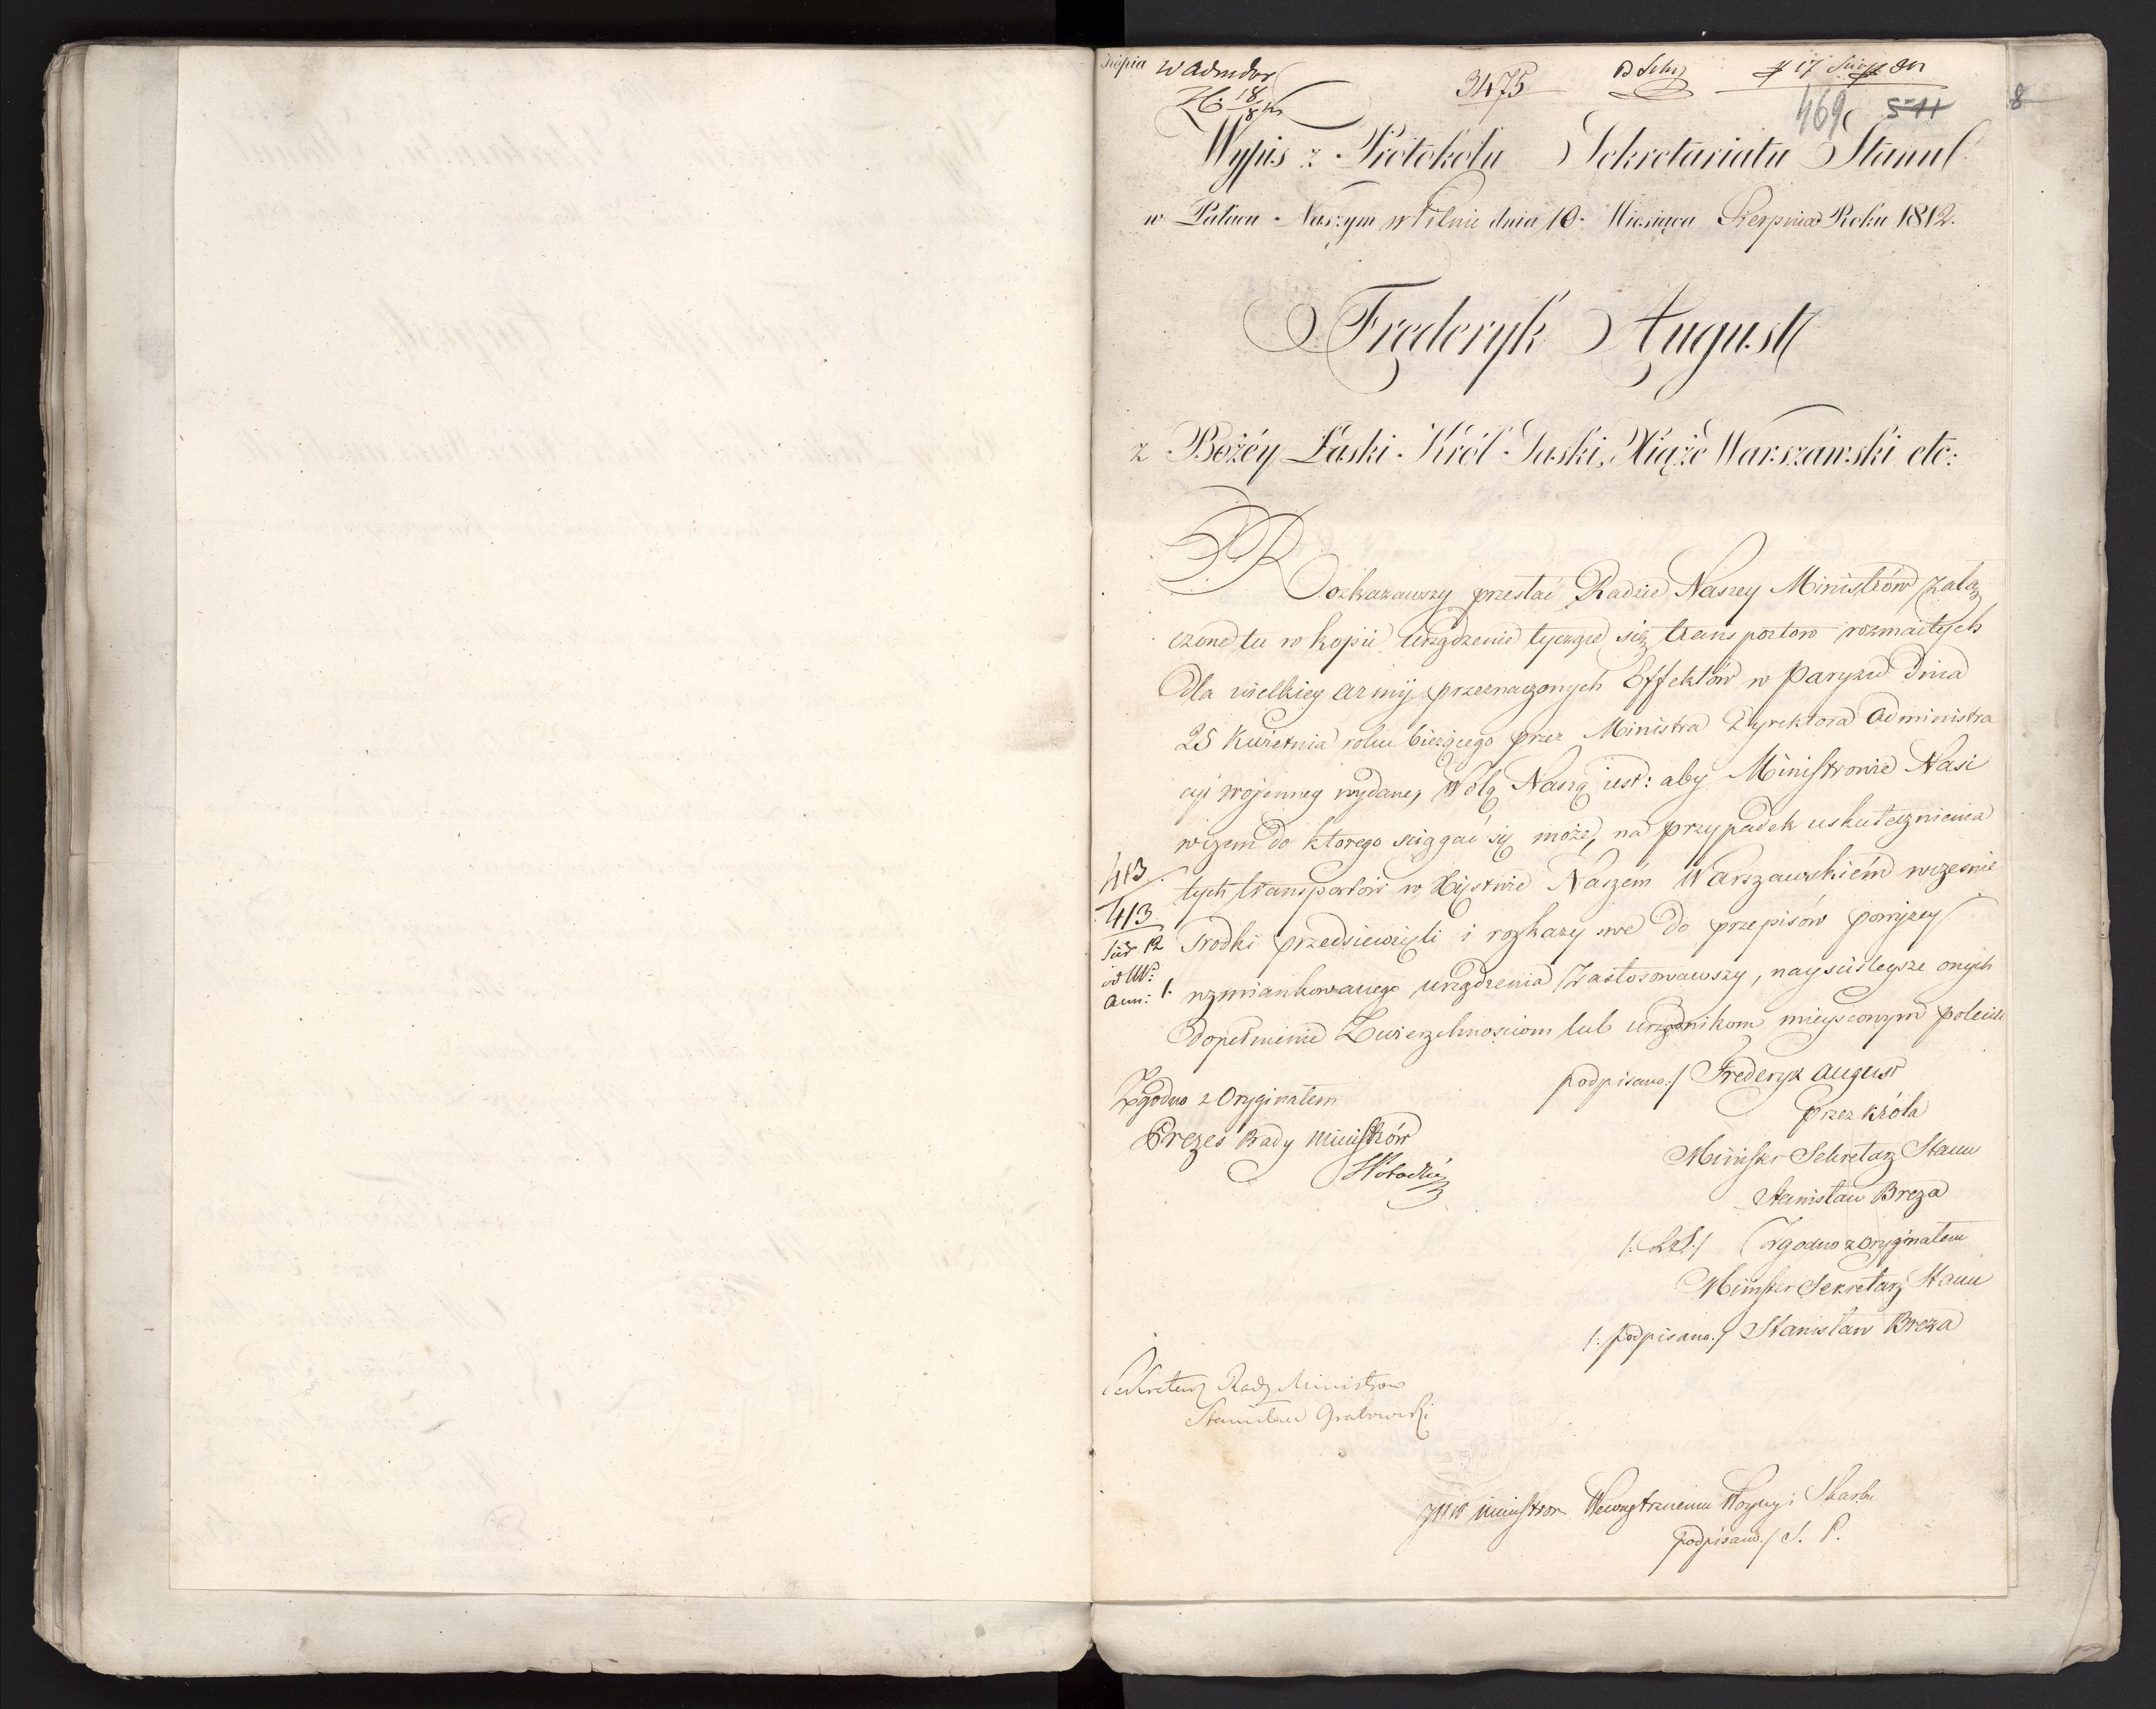 Kopia
3475
469
8
Wypis z Protokołu Sekretariatu Stanu
w Pałacu Naszym w Pilnie dnia 10. Miesiąca Sierpnia Roku 1812.
Fryderyk August
z Bożéy Łaski Król Saski, Xiążę Warszawski etc:
Rozkazawszy przesłać Radzie Naszey Ministrów załą
czone tu w kopii urządzenie tyczące się transportow rozmaitych
dla wielkiey armij przeznaczonych Effektów w Paryżu dnia
25 Kwietnia roku bieżącego przez Ministra Dyrektora administra
cyi wojenney wydane, Wolą Naszą iest: aby Ministrowie Nasi
w czem do ktorego sciągać się może, na przypadek uskutecznienia
tych transportów w Xięstwie Naszém Warszawskiém wczesnie
srodki przedsiewzięli i rozkazy swe do przepisów powyżey
wzmiankowanego urządzenia zastosowawszy, nayscisleysze onych
dopełnienie Zwierzchnosciom lub urzędnikom mieyscowym polecili
413
413
podpisano:/ Fryderyk August
przez króla
Minister Sekretarz Stanu
Stanisław Breza
/: L.S:/ Zgodno z oryginałem
Minister Sekretarz Stanu
/: podpisano:/ Stanisław Breza
Zgodno z Oryginałem
Prezes Rady Ministrów
Sekretarz Rady Ministrow
Stanisław Grabowski
JWW Ministrom Wewnętrznemu Woyny i Skarbu
podpisano:/ S. P.